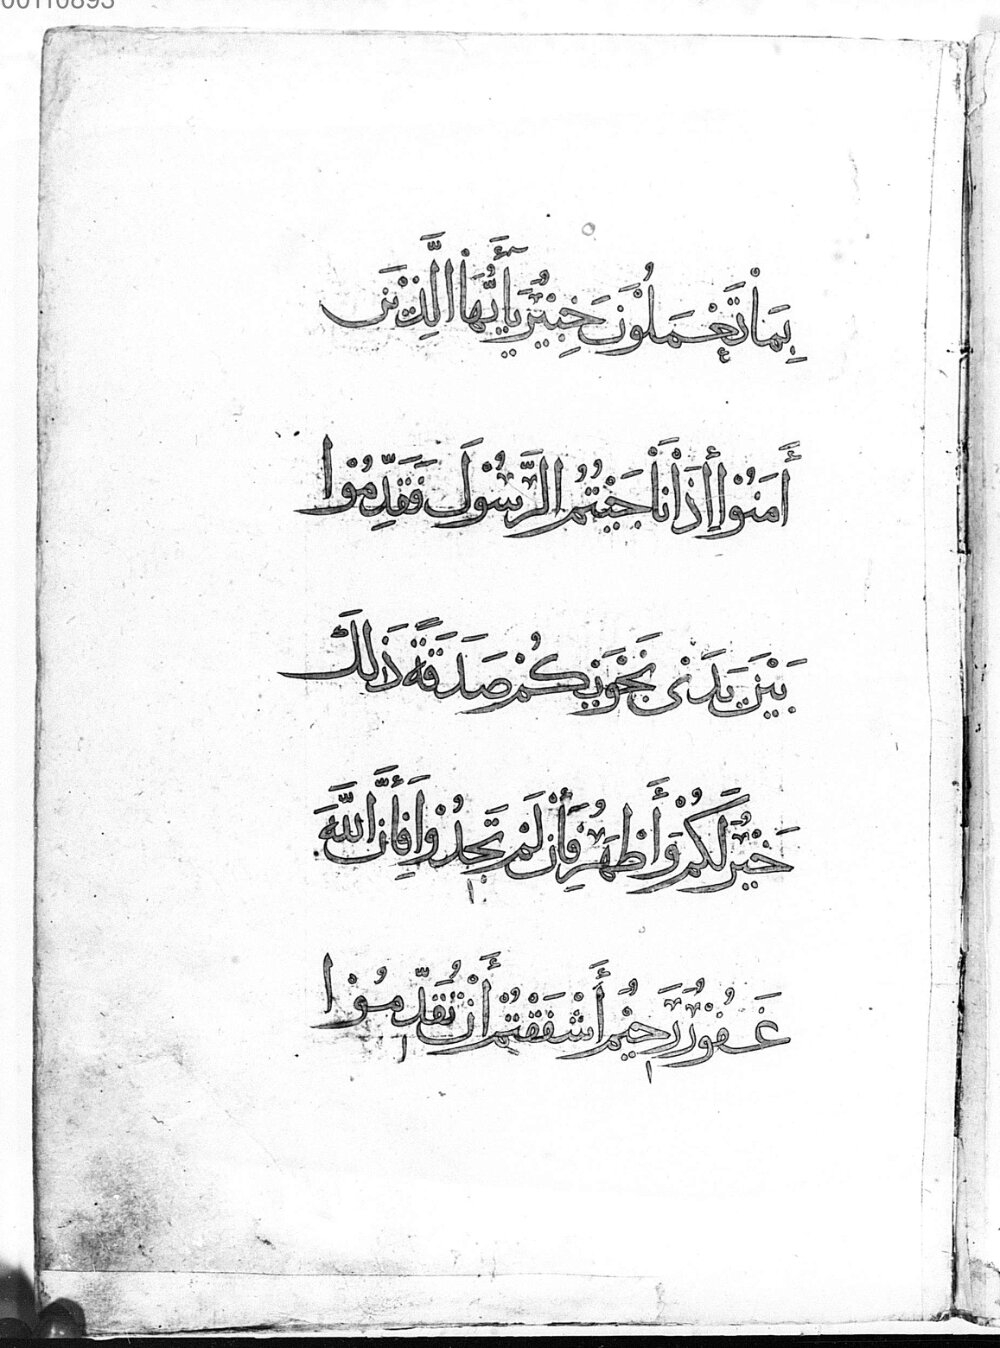 00110893
بِمَا تَعْمَلُونَ خَبِيرٌ يَا أَيُّهَا الَّذِينَ
أَمَنُوا إِذَا نَاجَيْتُمُ الرَّسُولَ فَقَدِّمُوا
بَيْنَ يَدَىْ نَجْوَيكُمْ صَدَقَةً ذَلِكَ
خَيْرٌ لَكُمْ وَأَطْهَرُ فَإِنْ لَمْ تَجِدُوا فَإِنَّ اللَّهَ
غَفُورٌ رَحِيمٌ أَأَشْفَقْتُمْ أَنْ تُقَدِّمُوا